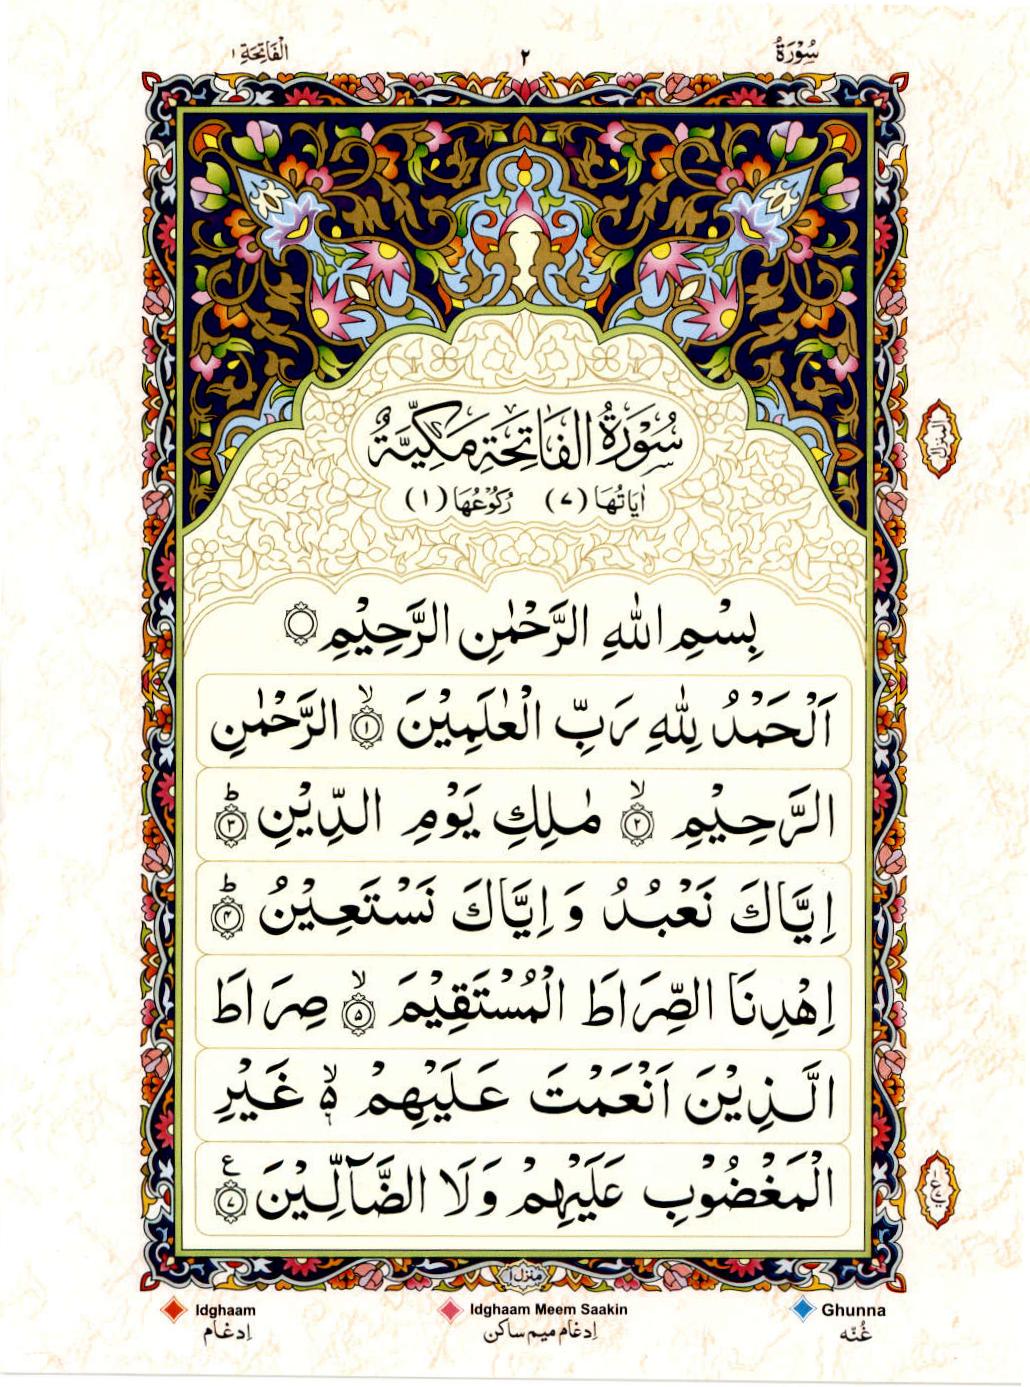 سُوْرَةُ ٢ الْفَاتِحَةِ ١
سُوْرَةُ الْفَاتِحَةِ مَكِّيَّةٌ
اٰيَاتُهَا (٧) رُكُوْعُهَا (١)
بِسْمِ اللّٰهِ الرَّحْمٰنِ الرَّحِيْمِ
اَلْحَمْدُ لِلّٰهِ رَبِّ الْعٰلَمِيْنَ ۙ‏ ١ الرَّحْمٰنِ
الرَّحِيْمِ ۙ‏ ٢ مٰلِكِ يَوْمِ الدِّيْنِ ؕ‏ ٣
اِيَّاكَ نَعْبُدُ وَ اِيَّاكَ نَسْتَعِيْنُ ؕ‏ ۴
اِهْدِنَا الصِّرَاطَ الْمُسْتَقِيْمَ ۙ‏ ۵ صِرَاطَ
الَّذِيْنَ اَنْعَمْتَ عَلَيْهِمْ ۙ۬ ە غَيْرِ
الْمَغْضُوْبِ عَلَيْهِمْ وَلَا الضَّآلِّيْنَ ع ٧
المنزل
منزل ١
Idghaam Idghaam Meem Saakin Ghunna
اِدغام اِدغام میم ساکن غُنّه